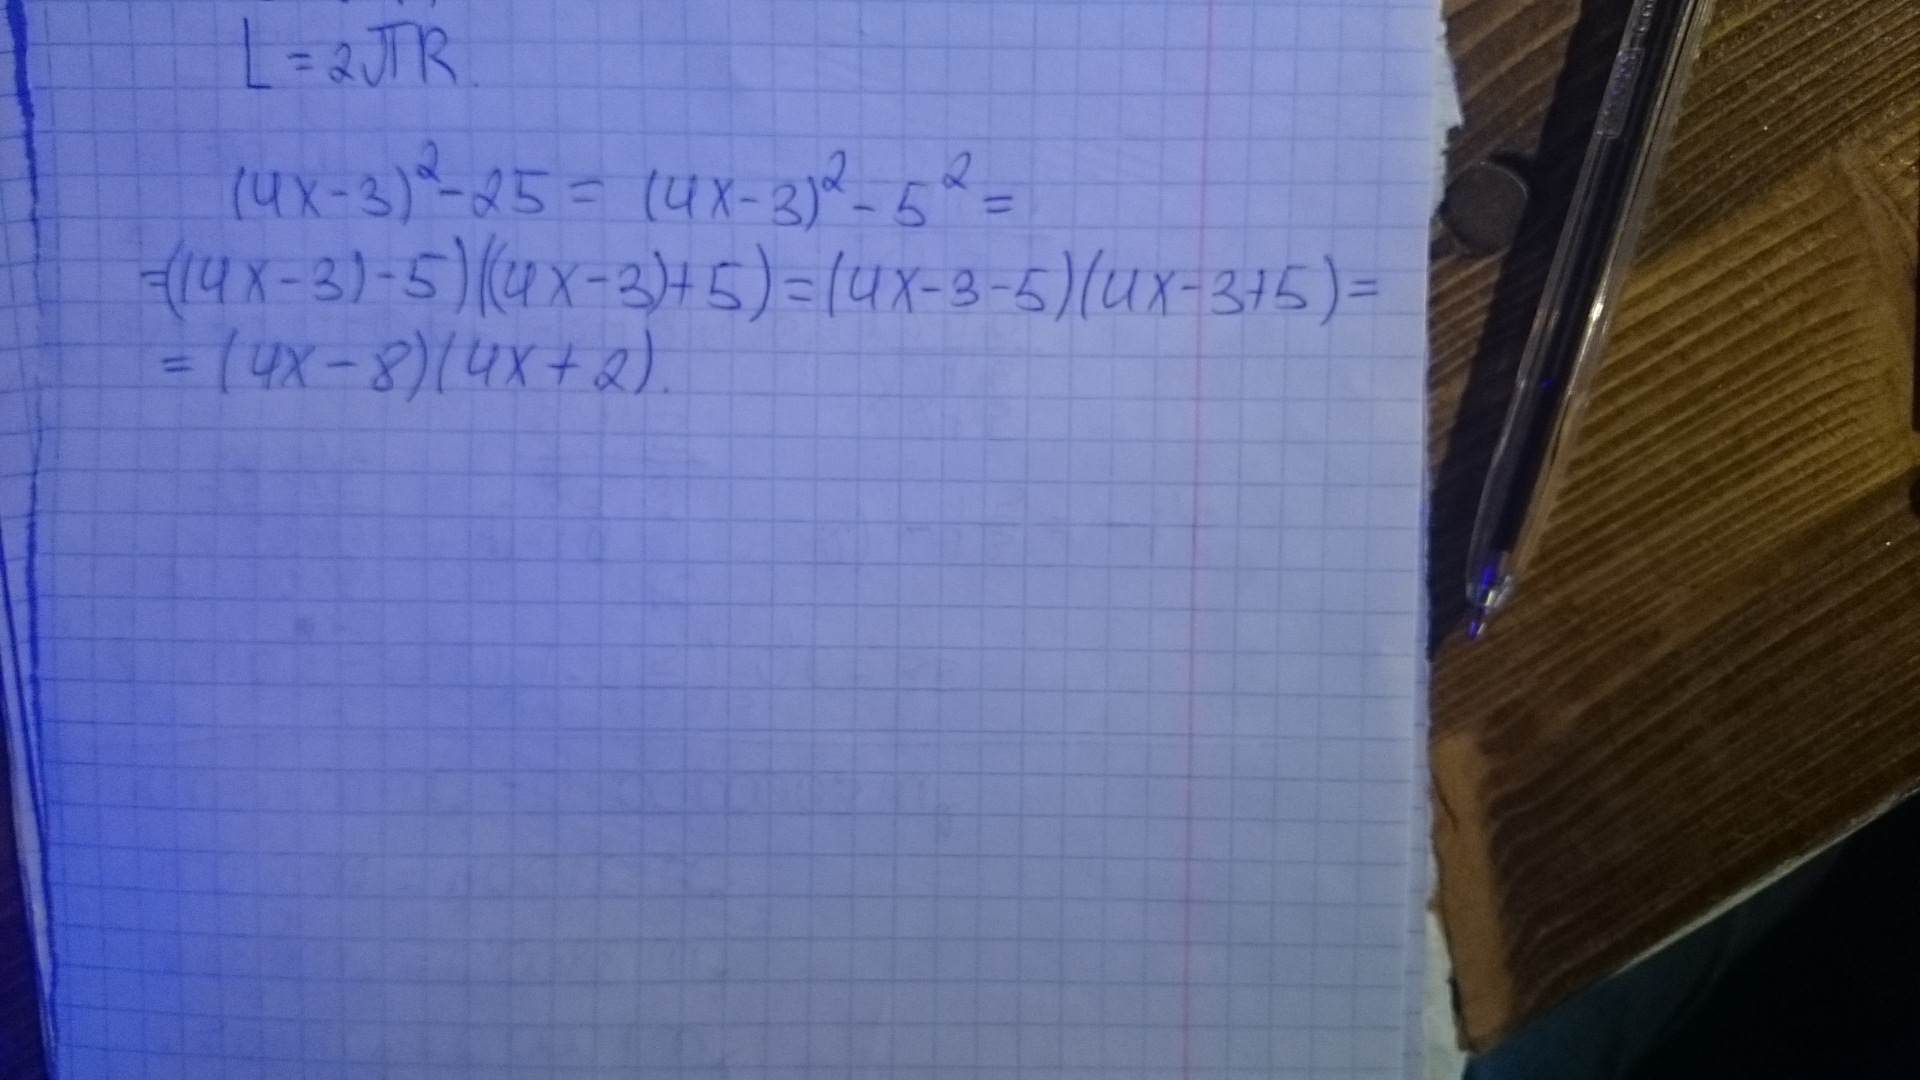 L = 2πR.
(4x-3)²-25 = (4x-3)² - 5² =
=((4x-3)-5)((4x-3)+5)=(4x-3-5)(4x-3+5)=
= (4x-8)(4x+2).